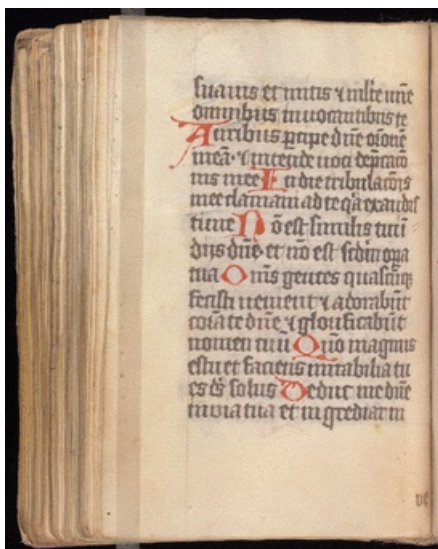 suauis et mitis ⁊ mľte mīe
omnibus inuocantibus te
Auribus ꝑcipe dn̄e or̄onē
meā ⁊ intende uoci dep̄cacō
nis mee In die tribulacōis
mee clamaui ad te qͥa exaudis
ti me Nō est similis tui ī
dijs dn̄e et nō est scd̄m oꝑa
tua Om̄s gentes quascūqꝫ
fecisti uenient ⁊ adorabūt
corā te dn̄e ⁊ glorificabūt
nomen tuū Qm̄o magnus
es tu et faciens mirabilia tu
es ds̄ solus Deduc me dn̄e
in uia tua et in grediar in
ve